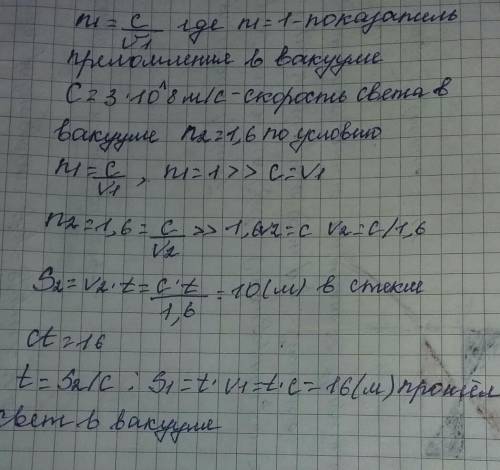 n1 = c/v1 где n1=1-показатель
преломления в вакууме
C=3·10^8 м/с-скорость света в
вакууме n2=1,6 по условию
n1=c/v1, n1=1>> c=v1
n2=1,6=c/v2 >> 1,6v2=c v2=c/1,6
S2=v2·t=c·t/1,6=10(м) в стекле
ct=16
t=S2/c; S1=t·v1=t·c=16(м) прошёл
свет в вакууме